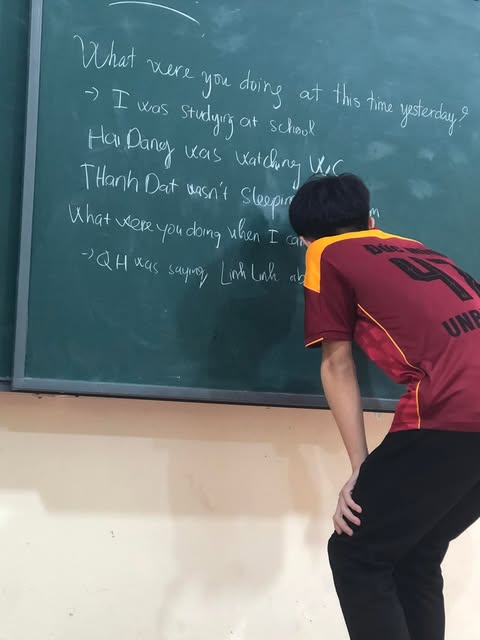 What were you doing at this time yesterday?
→ I was studying at school
Hai Dang was watching
THanh Dat wasn't sleeping
What were you doing when I
→ QH was saying Linh Linh
47
UNP